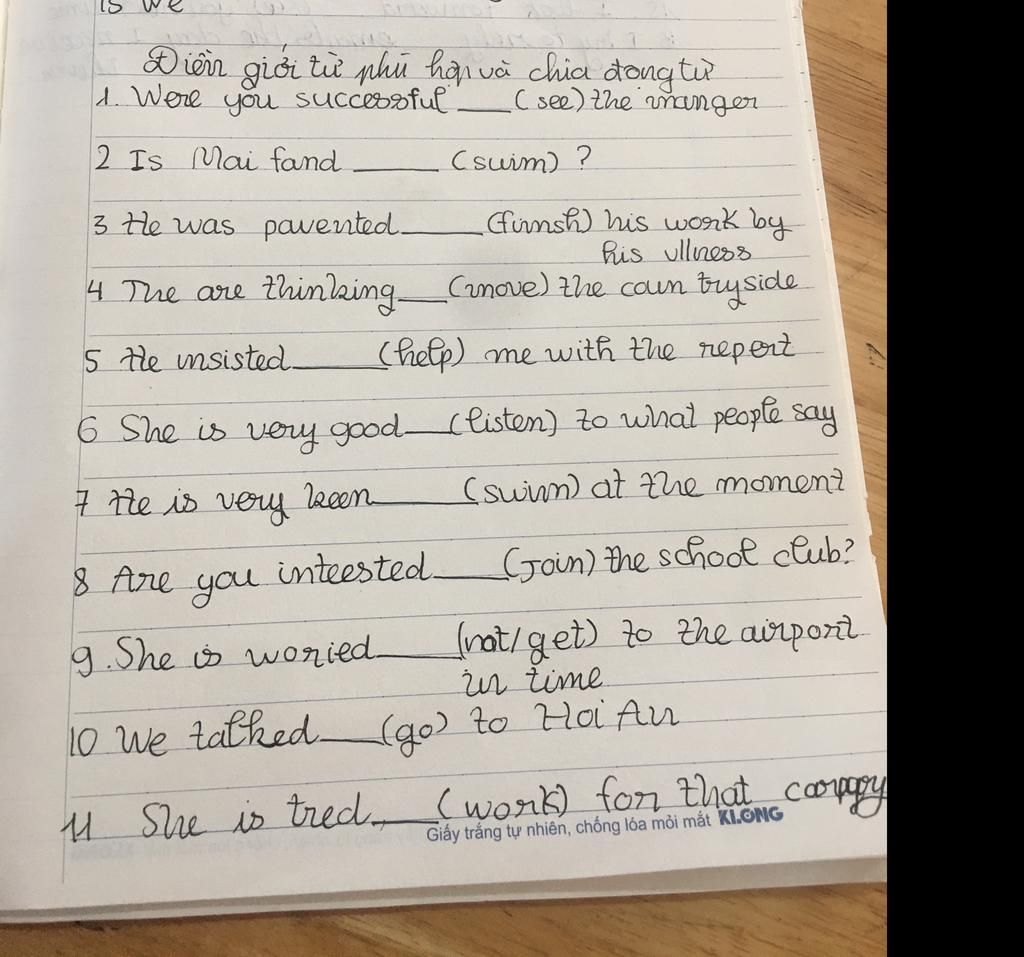 is we
Điền giới từ phù hợp và chia đong từ
1. Were you successful ___ (see) the manger
2 Is Mai fand ___ (swim) ?
3 He was pavented ___ (finish) his work by
his illness
4 The are thinking ___ (move) the coun tryside
5 He insisted ___ (help) me with the report
6 She is very good ___ (listen) to what people say
7 He is very keen ___ (swim) at the moment
8 Are you inteested ___ (Join) the school club?
9. She is woried ___ (not/get) to the airport
in time
10 We talked ___ (go) to Hoi An
11 She is tred ___ (work) for that
Giấy trắng tự nhiên, chống lóa mỏi mắt KLONG